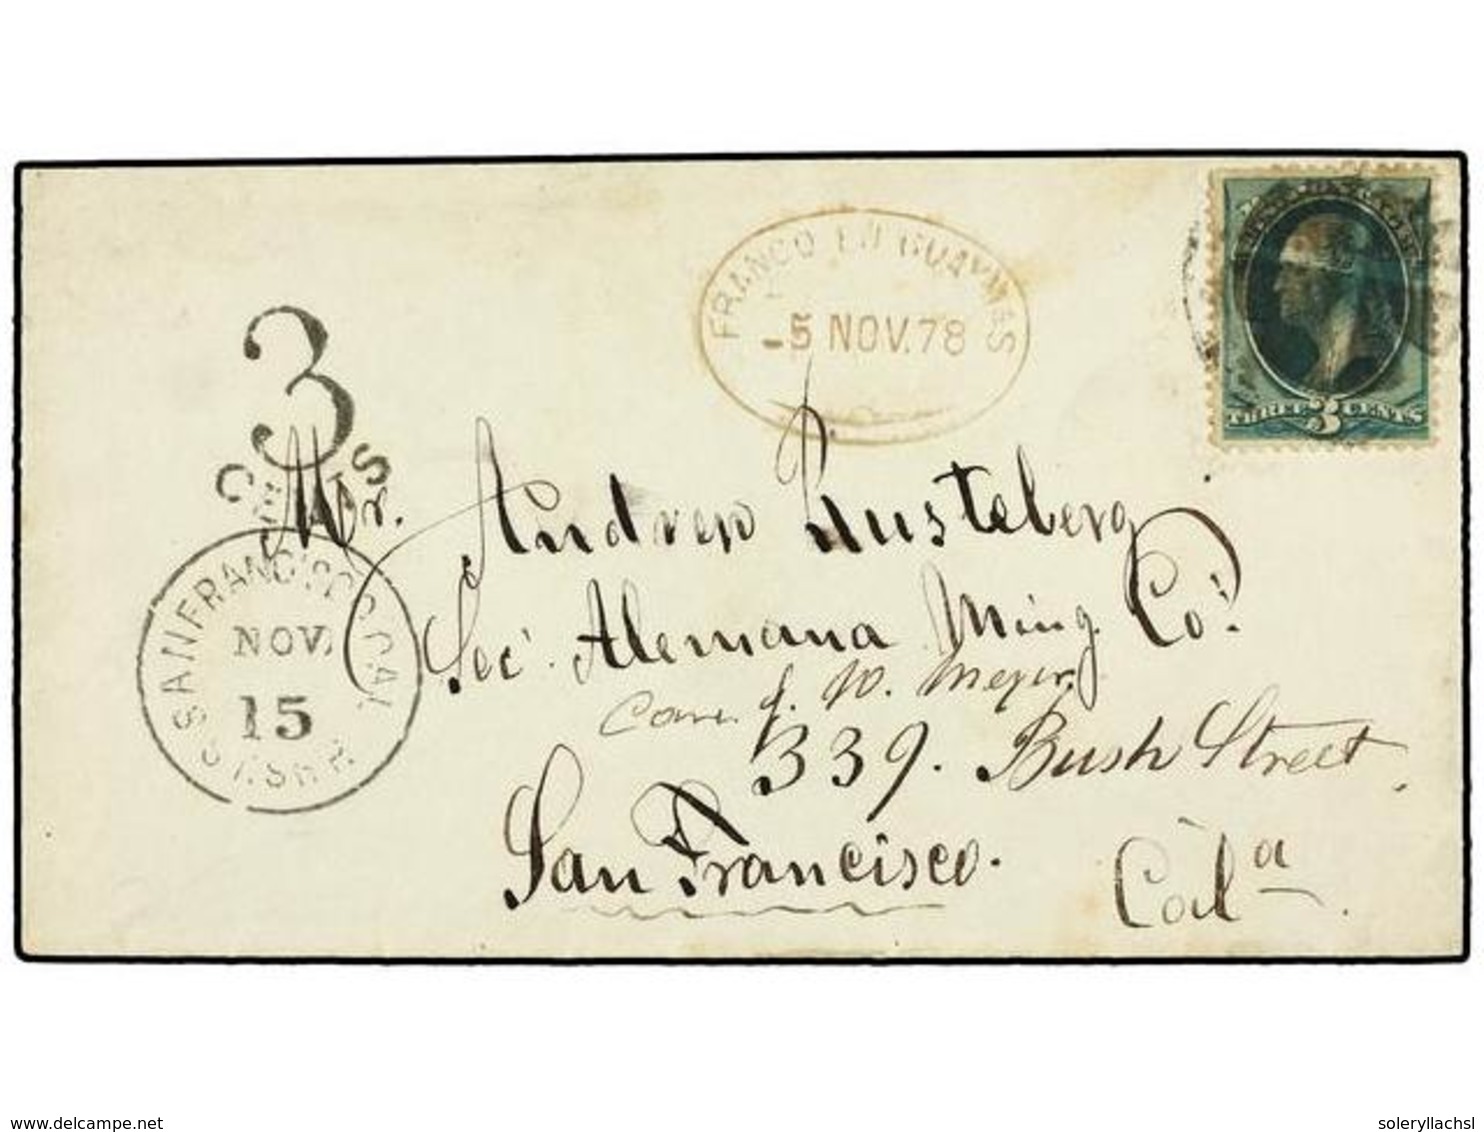 FRANCO EN GUAYMAS
-5 NOV. 78
THREE 3 CENTS
3
CENTS
Mr. Andrew Rusteberg
Sec'. Alemana Ming. Co'.
SAN FRANCISCO CAL.
NOV.
15
Care. J. W. Meyer.
339. Bush Street,
San Francisco. Cal a.
delcampe.net
soleryllachsl